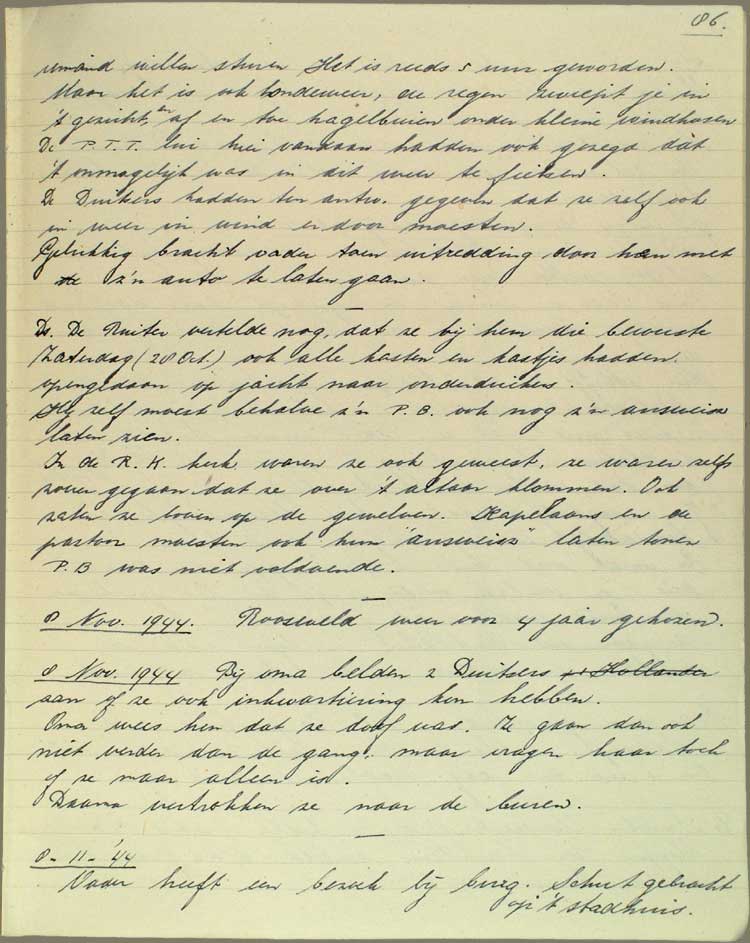 86.
iemand willen sturen Het is reeds 5 uur geworden.
Maar het is ook hondeweer, de regen zweept je in
't gezicht, en af en toe hagelbuien onder kleine windhozen
De P.T.T. lui hier vandaan hadden ook gezegd dat
't onmogelijk was in dit weer te fietsen.
De Duitsers hadden ten antw. gegeven dat ze zelf ook
in weer in wind er door moesten.
Gelukkig bracht vader toen uitredding door hen met
z'n auto te laten gaan.
Ds. De Ruiter vertelde nog, dat ze bij hem die bewuste
Zaterdag (28 Oct.) ook alle kasten en kastjes hadden
opengedaan op jacht naar onderduikers.
Hij zelf moest behalve z'n P.B. ook nog z'n ausweis
laten zien.
In de R.K. kerk waren ze ook geweest, ze waren zelfs
zover gegaan dat ze over 't altaar klommen. Ook
zaten ze boven op de gewelven. Kapelaans en de
pastoor moesten ook hun "ausweis" laten tonen
P.B was niet voldoende.
8 Nov. 1944. Rooseveld weer voor 4 jaar gekozen.
8 Nov. 1944 Bij oma belden 2 Duitsers Hollander
aan of ze ook inkwartiering kon hebben.
Oma wees hen dat ze doof was. Ze gaan dan ook
niet verder dan de gang, maar vragen haar toch
of ze maar alleen is.
Daarna vertrokken ze naar de buren.
8-11-'44
Vader heeft een bezoek bij burg. Schut gebracht
op 't stadhuis.